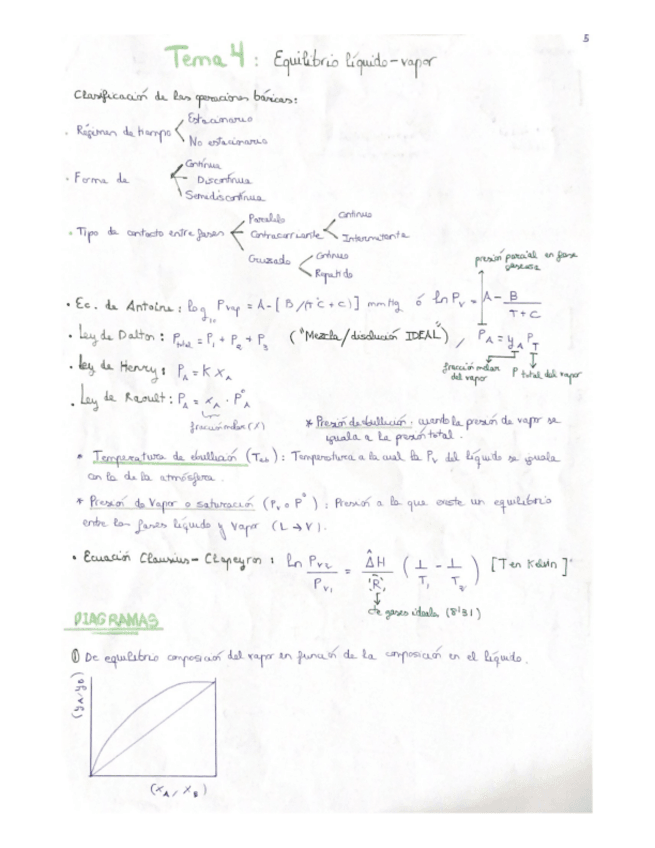 5
Tema 4: Equilibrio líquido-vapor
Clasificación de las operaciones básicas:
. Régimen de tiempo
Estacionario
No estacionario
. Forma de
Continua
Discontinua
Semidiscontinua
. Tipo de contacto entre fases
Paralelo
Contracorriente
Continuo
Intermitente
Cruzado
Continuo
Repetido
presión parcial en fase
gaseosa
• Ec. de Antoine: log₁₀ Pvap = A-[B/(t°C+C)] mmHg ó ln Pv = A - B/(T+C)
• Ley de Dalton: Ptotal = P₁ + P₂ + P₃ ("Mezcla/disolución IDEAL"), PA = yA PT
fracción molar
del vapor
P total del vapor
• Ley de Henry: PA = K XA
• Ley de Raoult: PA = xA · P°A
fracción molar (X)
* Presión de ebullición: cuando la presión de vapor se
iguala a la presión total.
* Temperatura de ebullición (Teb): Temperatura a la cual la Pv del líquido se iguala
con la de la atmósfera.
* Presión de Vapor o saturación (Pv o P°): Presión a la que existe un equilibrio
entre las fases líquido y vapor (L → V).
• Ecuación Clausius-Clapeyron: ln Pv₂/Pv₁ = ΔĤ/R (1/T₁ - 1/T₂) [T en Kelvin]
cte gases ideales (8'31)
DIAGRAMAS
① De equilibrio composición del vapor en función de la composición en el líquido.
(yA/yB)
(xA/xB)